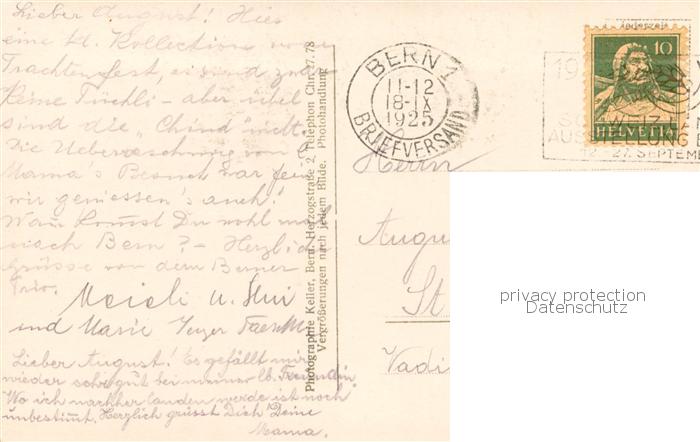 Lieber August! Hier
eine kl. Kollection vom
Trachtenfest, es sind zwar
keine Tüchli – aber übel
sind die „Chind" nicht.
Die Ueberraschung von
Mama's Besuch war fein
wir geniessen's auch!
Wan kommst Du wohl mal
nach Bern? – Herzliche
Grüsse von dem Berner
Trio.
Meieli u.
und Marie
Lieber August! Es gefällt mir
wieder sehr gut bei meiner lb. Freundin.
Wo ich nachher landen werde ist noch
unbestimmt. Herzlich grüsst Dich Deine
Mama.
Photographie Keller, Bern, Herzogstraße 2, Telephon Chr. 27.78
Vergrößerungen nach jedem Bilde. Photohandlung
BERN 1
11-12
18·IX
1925
BRIEFVERSAND
10
HELVETIA
AUSSTELLUNG
12.-27. SEPTEM
Herrn
Augu
St.
Vadi
privacy protection
Datenschutz